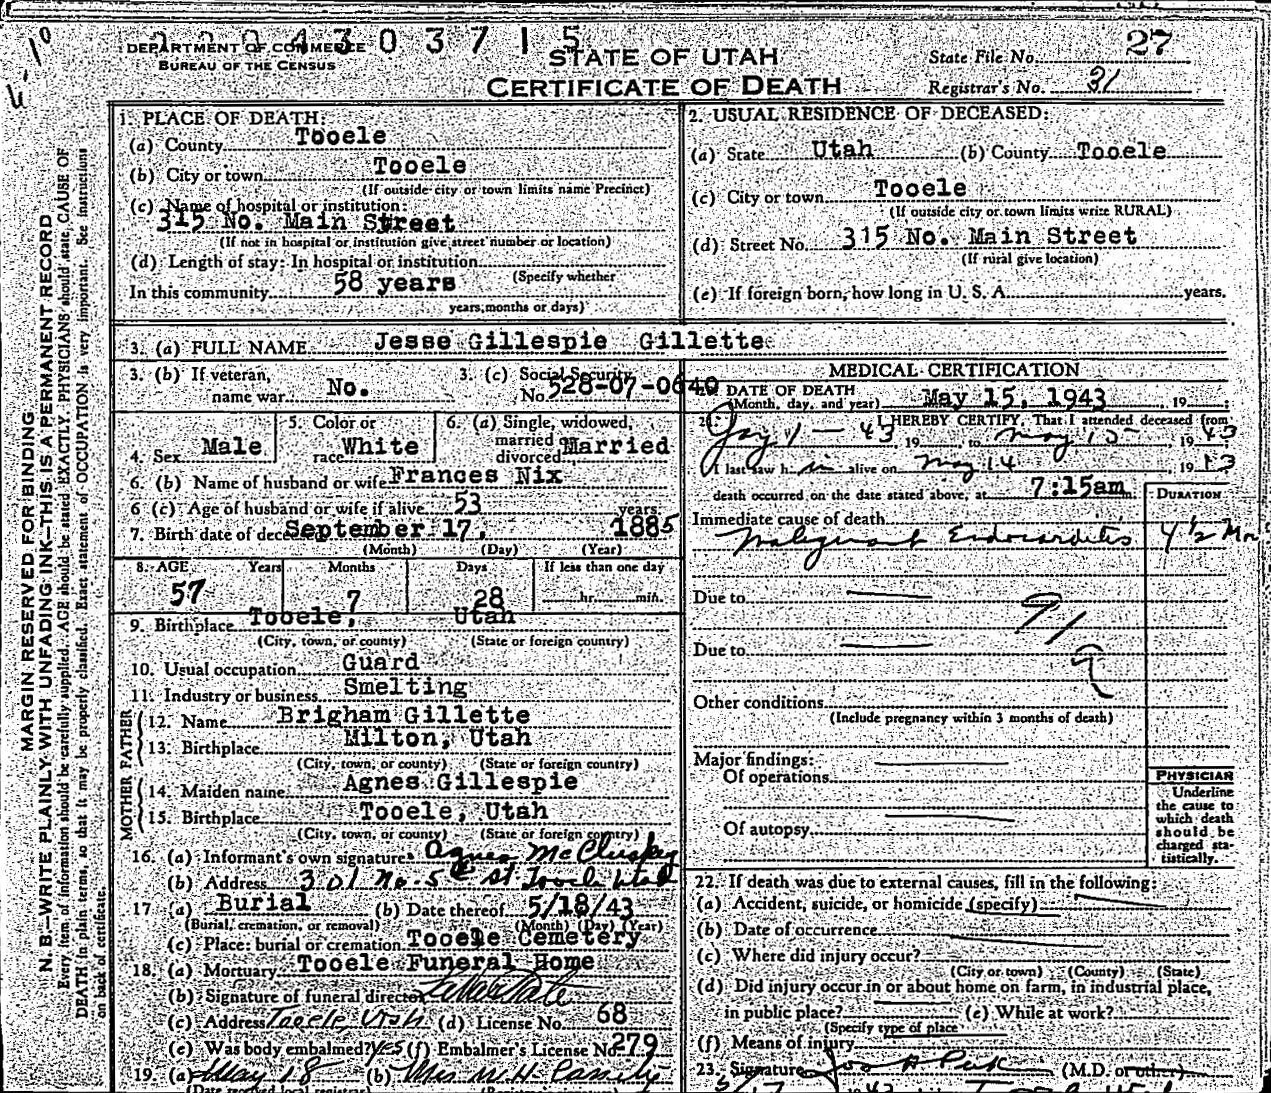 DEPARTMENT OF COMMERCE
BUREAU OF THE CENSUS
STATE OF UTAH
CERTIFICATE OF DEATH
State File No. 27
Registrar's No. 31
MARGIN RESERVED FOR BINDING
N. B.—WRITE PLAINLY WITH UNFADING INK—THIS IS A PERMANENT RECORD
Every item of information should be carefully supplied. AGE should be stated EXACTLY. PHYSICIANS should state CAUSE OF
DEATH in plain terms, so that it may be properly classified. Exact statement of OCCUPATION is very important. See instructions
on back of certificate.
1. PLACE OF DEATH:
(a) County Tooele
(b) City or town Tooele
(If outside city or town limits name Precinct)
(c) Name of hospital or institution:
315 No. Main Street
(If not in hospital or institution give street number or location)
(d) Length of stay: In hospital or institution
(Specify whether
In this community 58 years
years, months or days)
2. USUAL RESIDENCE OF DECEASED:
(a) State Utah (b) County Tooele
(c) City or town Tooele
(If outside city or town limits write RURAL)
(d) Street No. 315 No. Main Street
(If rural give location)
(e) If foreign born, how long in U. S. A. years.
3. (a) FULL NAME Jesse Gillespie Gillette
3. (b) If veteran, name war No.
3. (c) Social Security No. 528-07-0640
4. Sex Male
5. Color or race White
6. (a) Single, widowed, married or divorced Married
6. (b) Name of husband or wife Frances Nix
6 (c) Age of husband or wife if alive 53 years
7. Birth date of deceased September 17, 1885
(Month) (Day) (Year)
8. AGE Years Months Days If less than one day
57 7 28 hr. min.
9. Birthplace Tooele, Utah
(City, town, or county) (State or foreign country)
10. Usual occupation Guard
11. Industry or business Smelting
FATHER
12. Name Brigham Gillette
13. Birthplace Milton, Utah
(City, town, or county) (State or foreign country)
MOTHER
14. Maiden name Agnes Gillespie
15. Birthplace Tooele, Utah
(City, town, or county) (State or foreign country)
16. (a) Informant's own signature Agnes McCluskey
(b) Address 301 No. 5th St Tooele Utah
17 (a) Burial (b) Date thereof 5/18/43
(Burial, cremation, or removal) (Month) (Day) (Year)
(c) Place: burial or cremation Tooele Cemetery
18. (a) Mortuary Tooele Funeral Home
(b) Signature of funeral director
(c) Address Tooele, Utah (d) License No. 68
(e) Was body embalmed? Yes (f) Embalmer's License No. 279
19. (a) May 18 (b) Mrs M.H.
(Date received local registrar)
MEDICAL CERTIFICATION
20. DATE OF DEATH
(Month, day, and year) May 15, 1943 , 19
21. I HEREBY CERTIFY, That I attended deceased from
Jay 1 — 43 19 , to May 15 , 19 43
I last saw h im alive on May 14 , 19 43
death occurred on the date stated above, at 7:15am.
DURATION
Immediate cause of death
Malignant Endocarditis 4 1/2 Mo.
Due to
Due to
Other conditions
(Include pregnancy within 3 months of death)
Major findings:
Of operations
Of autopsy
PHYSICIAN
Underline
the cause to
which death
should be
charged sta-
tistically.
22. If death was due to external causes, fill in the following:
(a) Accident, suicide, or homicide (specify)
(b) Date of occurrence
(c) Where did injury occur?
(City or town) (County) (State)
(d) Did injury occur in or about home on farm, in industrial place,
in public place? (e) While at work?
(Specify type of place)
(f) Means of injury
23. Signature Jos H Peck (M.D. or other)